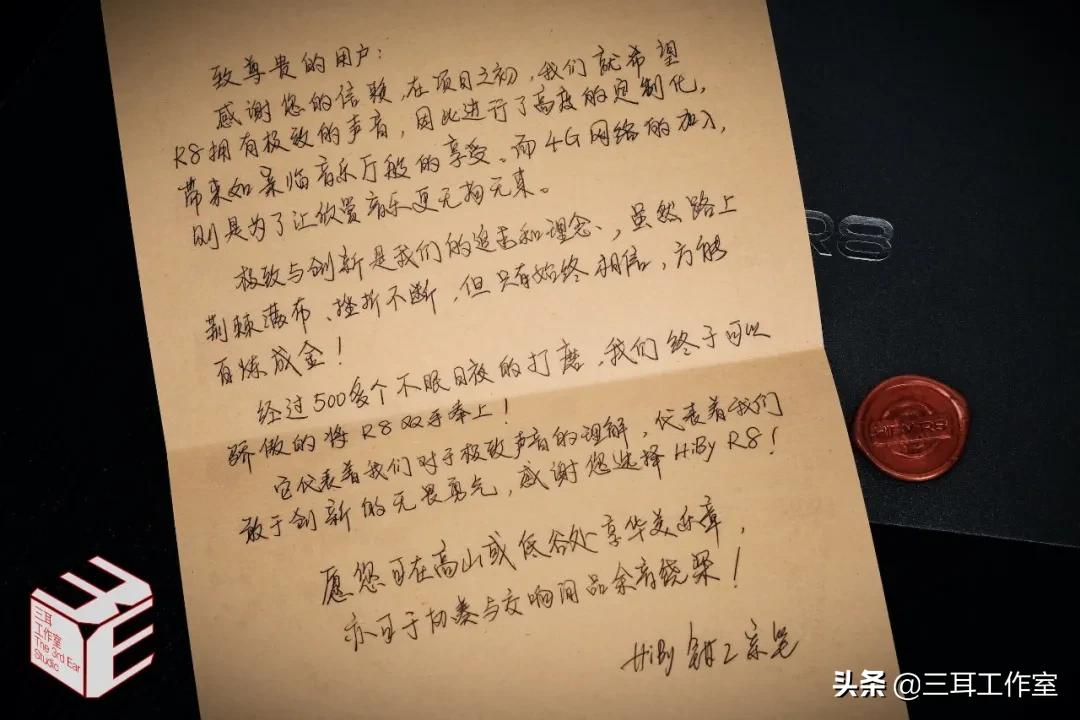 致尊贵的用户：
感谢您的信赖，在项目之初，我们就希望
R8拥有极致的声音，因此进行了高度的定制化，
带来如亲临音乐厅般的享受。而4G网络的加入，
则是为了让欣赏音乐更无拘无束。
极致与创新是我们的追求和理念，虽然路上
荆棘满布、挫折不断，但只有始终相信，方能
百炼成金！
经过500多个不眠日夜的打磨，我们终于可以
骄傲的将R8双手奉上！
它代表着我们对于极致声音的理解，代表着我们
敢于创新的无畏勇气，感谢您选择HiBy R8！
愿您可在高山或低谷处享华美乐章，
亦可于协奏与交响间品余音绕梁！
HiBy
R8
三耳
工作室
The 3rd Ear
Studio
头条 @三耳工作室